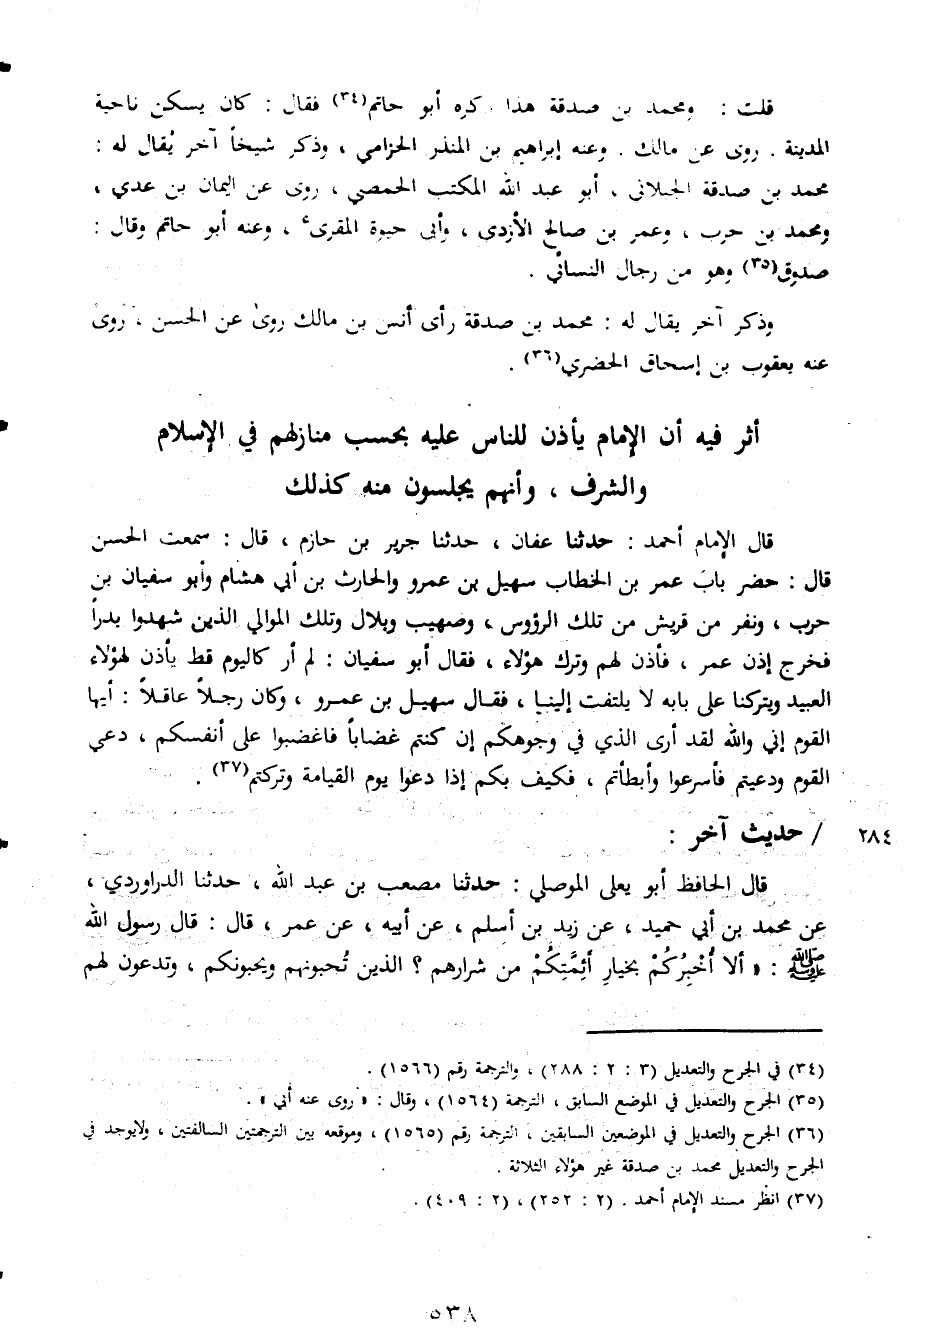 قلت : ومحمد بن صدقة هذا ذكره أبو حاتم(٣٤) فقال : كان يسكن ناحية
المدينة . روى عن مالك . وعنه إبراهيم بن المنذر الحزامي ، وذكر شيخاً آخر يُقال له :
محمد بن صدقة الجبلاني ، أبو عبد الله المكتب الحمصي ، روى عن اليمان بن عدي ،
ومحمد بن حرب ، وعمر بن صالح الأزدى ، وأبى حيوة المقرىء ، وعنه أبو حاتم وقال :
صدوق(٣٥) وهو من رجال النسائي .
وذكر آخر يقال له : محمد بن صدقة رأى أنس بن مالك روىٰ عن الحسن ، روىٰ
عنه يعقوب بن إسحاق الحضري(٣٦) .
أثر فيه أن الإمام يأذن للناس عليه بحسب منازلهم في الإسلام
والشرف ، وأنهم يجلسون منه كذلك
قال الإمام أحمد : حدثنا عفان ، حدثنا جرير بن حازم ، قال : سمعت الحسن
قال : حضر بابَ عمر بن الخطاب سهيل بن عمرو والحارث بن أبي هشام وأبو سفيان بن
حرب ، ونفر من قريش من تلك الرؤوس ، وصهيب وبلال وتلك الموالي الذين شهدوا بدراً
فخرج إذن عمر ، فأذن لهم وترك هؤلاء ، فقال أبو سفيان : لم أر كاليوم قط يأذن لهؤلاء
العبيد ويتركنا على بابه لا يلتفت إلينا ، فقال سهيل بن عمرو ، وكان رجلاً عاقلاً : أيها
القوم إني والله لقد أرى الذي في وجوهكم إن كنتم غضاباً فاغضبوا على أنفسكم ، دعي
القوم ودعيتم فأسرعوا وأبطأتم ، فكيف بكم إذا دعوا يوم القيامة وتركتم(٣٧) .
٢٨٤ / حديث آخر :
قال الحافظ أبو يعلى الموصلي : حدثنا مصعب بن عبد الله ، حدثنا الدراوردي ،
عن محمد بن أبي حميد ، عن زيد بن أسلم ، عن أبيه ، عن عمر ، قال : قال رسول الله
ﷺ : « ألا أُخْبِرُكُمْ بخيارِ أَئِمَّتِكُمْ من شرارهم ؟ الذين تُحبونهم ويحبونكم ، وتدعون لهم
(٣٤) في الجرح والتعديل (٣ : ٢ : ٢٨٨) ، والترجمة رقم (١٥٦٦) .
(٣٥) الجرح والتعديل في الموضع السابق ، الترجمة (١٥٦٤) ، وقال : « روى عنه أبي » .
(٣٦) الجرح والتعديل في الموضعين السابقين ، الترجمة رقم (١٥٦٥) ، وموقعه بين الترجمتين السالفتين ، ولايوجد في
الجرح والتعديل محمد بن صدقة غير هؤلاء الثلاثة .
(٣٧) انظر مسند الإمام أحمد . (٢ : ٢٥٢) ، (٢ : ٤٠٩) .
٥٣٨